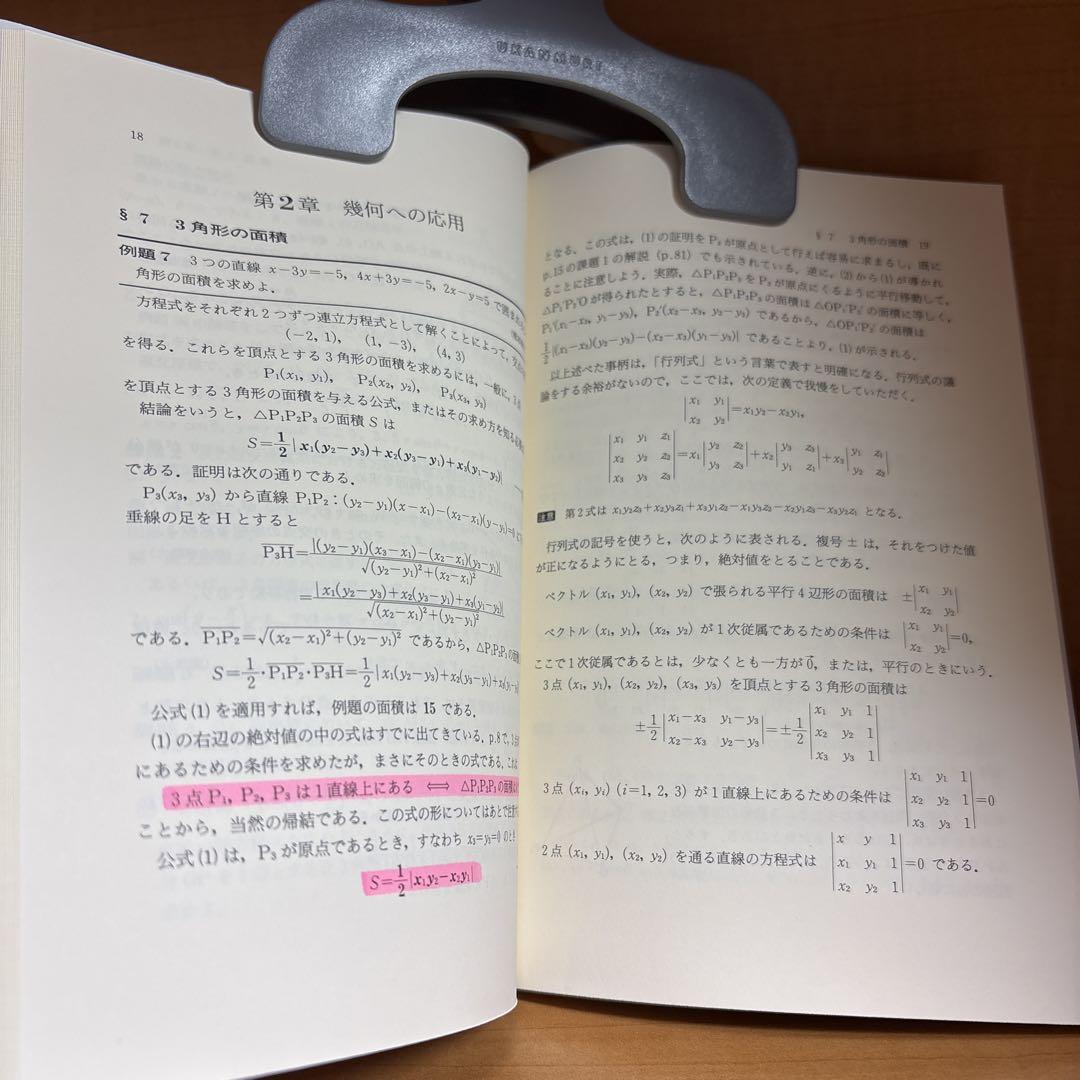 UKANMURI
18
第2章 幾何への応用
§7 3角形の面積
例題7 3つの直線 x−3y=−5, 4x+3y=−5, 2x−y=5 で囲まれ
角形の面積を求めよ.
方程式をそれぞれ2つずつ連立方程式として解くことによって,
(−2, 1), (1, −3), (4, 3)
を得る. これらを頂点とする3角形の面積を求めるには, 一般に, 3点
P₁(x₁, y₁), P₂(x₂, y₂), P₃(x₃, y₃)
を頂点とする3角形の面積を与える公式, またはその求め方を知る必要
結論をいうと, △P₁P₂P₃ の面積 S は
S=1/2|x₁(y₂−y₃)+x₂(y₃−y₁)+x₃(y₁−y₂)|
である. 証明は次の通りである.
P₃(x₃, y₃) から直線 P₁P₂:(y₂−y₁)(x−x₁)−(x₂−x₁)(y−y₁)=0
垂線の足をHとすると
P₃H=|(y₂−y₁)(x₃−x₁)−(x₂−x₁)(y₃−y₁)|/√(y₂−y₁)²+(x₂−x₁)²
=|x₁(y₂−y₃)+x₂(y₃−y₁)+x₃(y₁−y₂)|/√(x₂−x₁)²+(y₂−y₁)²
である. P₁P₂=√(x₂−x₁)²+(y₂−y₁)² であるから, △P₁P₂P₃の面積
S=1/2・P₁P₂・P₃H=1/2|x₁(y₂−y₃)+x₂(y₃−y₁)+x₃(y₁−
公式(1)を適用すれば, 例題の面積は 15 である.
(1)の右辺の絶対値の中の式はすでに出てきている. p.8で, 3点
にあるための条件を求めたが, まさにそのときの式である. これは
3点 P₁, P₂, P₃ は1直線上にある ⟺ △P₁P₂P₃の面積は
ことから, 当然の帰結である. この式の形についてはあとで
公式(1)は, P₃が原点であるとき, すなわち x₃=y₃=0 のとき
S=1/2|x₁y₂−x₂y₁|
§7 3角形の面積 19
となる. この式は, (1)の証明を P₃ が原点として行えば容易に求まるし, 既に
p.15の課題1の解説(p.81)でも示されている. 逆に, (2)から(1)が導かれ
ることに注意しよう. 実際, △P₁P₂P₃ を P₃ が原点にくるように平行移動して,
△P₁′P₂′O が得られたとすると, △P₁P₂P₃ の面積は △OP₁′P₂′ の面積に等しく,
P₁′(x₁−x₃, y₁−y₃), P₂′(x₂−x₃, y₂−y₃) であるから, △OP₁′P₂′ の面積は
1/2|(x₁−x₃)(y₂−y₃)−(x₂−x₃)(y₁−y₃)| であることより, (1)が示される.
以上述べた事柄は, 「行列式」という言葉で表すと明確になる. 行列式の議
論をする余裕がないので, ここでは, 次の定義で我慢をしていただく.
|x₁ y₁|
|x₂ y₂|=x₁y₂−x₂y₁,
|x₁ y₁ z₁|
|x₂ y₂ z₂|=x₁|y₂ z₂|+x₂|y₃ z₃|+x₃|y₁ z₁|
|x₃ y₃ z₃| |y₃ z₃| |y₁ z₁| |y₂ z₂|
注意 第2式は x₁y₂z₃+x₂y₃z₁+x₃y₁z₂−x₁y₃z₂−x₂y₁z₃−x₃y₂z₁ となる.
行列式の記号を使うと, 次のように表される. 複号 ± は, それをつけた値
が正になるようにとる, つまり, 絶対値をとることである.
ベクトル (x₁, y₁), (x₂, y₂) で張られる平行4辺形の面積は ±|x₁ y₁|
|x₂ y₂|
ベクトル (x₁, y₁), (x₂, y₂) が1次従属であるための条件は |x₁ y₁|=0,
|x₂ y₂|
ここで1次従属であるとは, 少なくとも一方が0⃗, または, 平行のときにいう.
3点 (x₁, y₁), (x₂, y₂), (x₃, y₃) を頂点とする3角形の面積は
±1/2|x₁−x₃ y₁−y₃|=±1/2|x₁ y₁ 1|
|x₂−x₃ y₂−y₃| |x₂ y₂ 1|
|x₃ y₃ 1|
3点 (xᵢ, yᵢ) (i=1, 2, 3) が1直線上にあるための条件は |x₁ y₁ 1|
|x₂ y₂ 1|=0
|x₃ y₃ 1|
2点 (x₁, y₁), (x₂, y₂) を通る直線の方程式は |x y 1|
|x₁ y₁ 1|=0 である.
|x₂ y₂ 1|